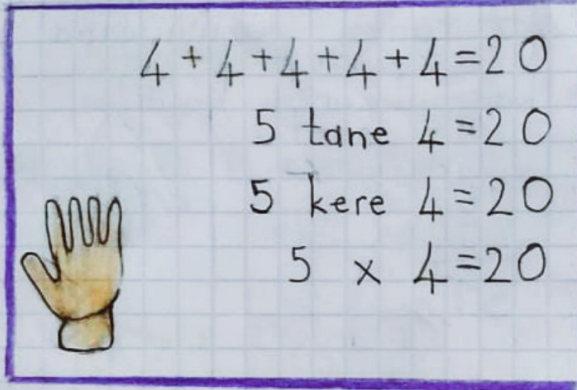 4+4+4+4+4=20
5 tane 4=20
5 kere 4=20
5 x 4=20